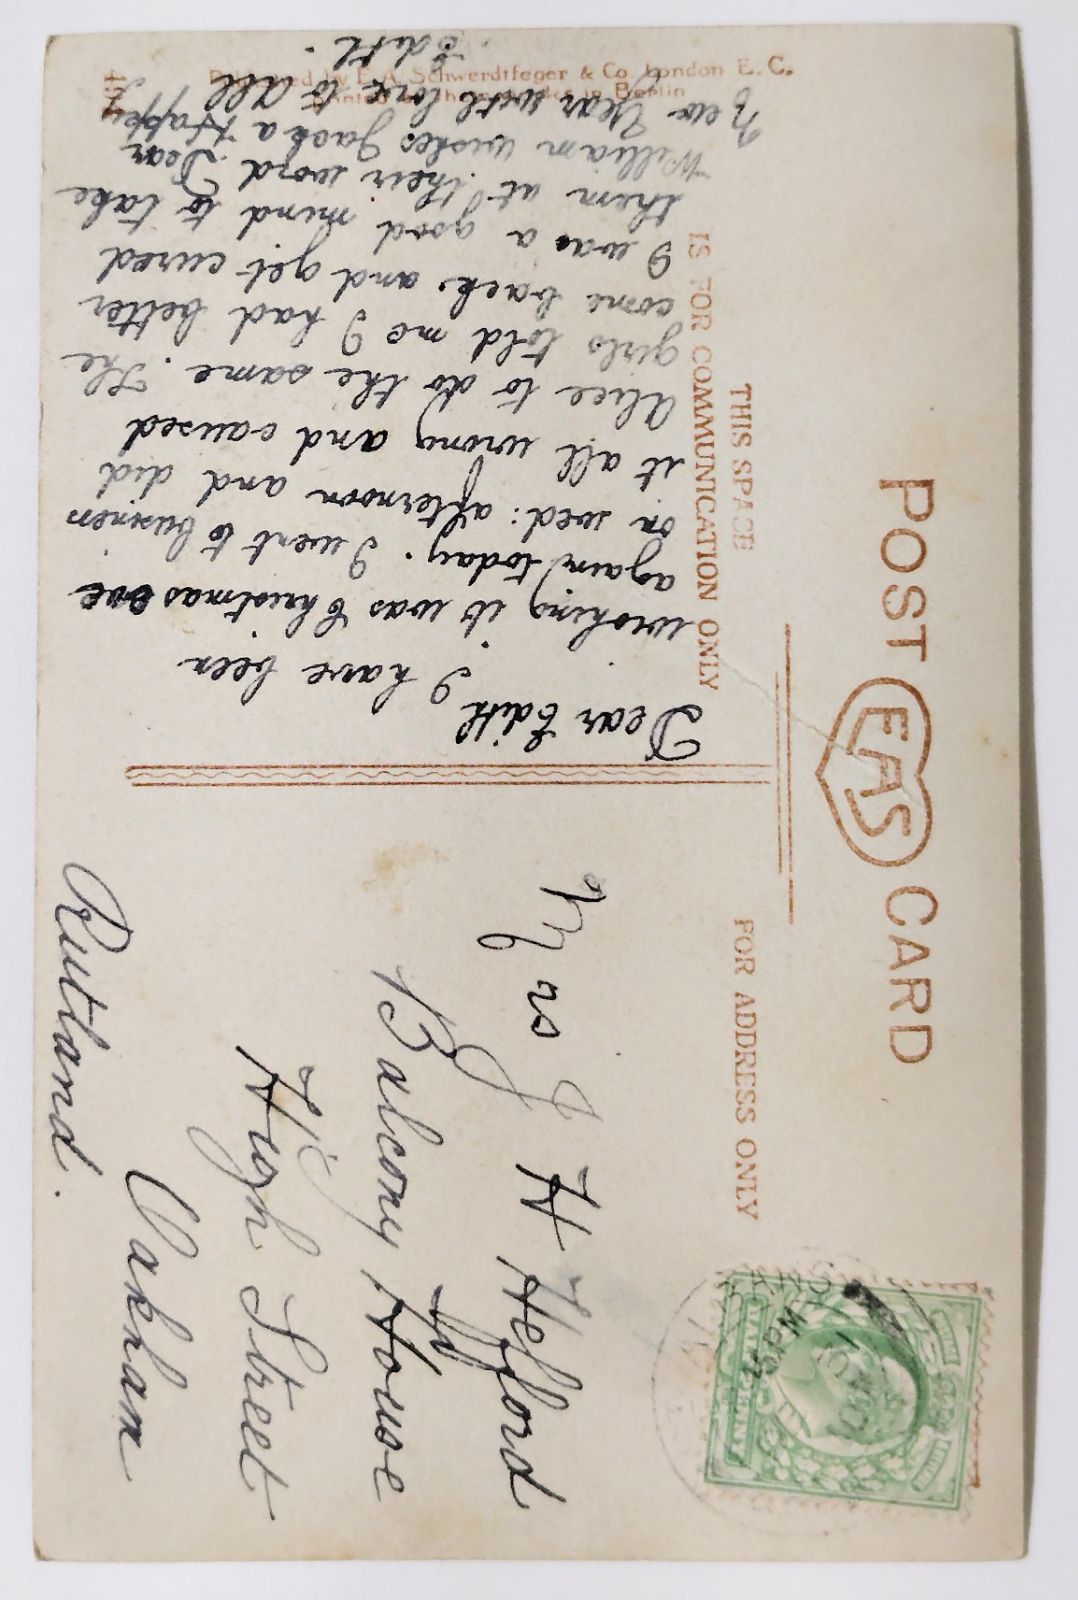 POST CARD
EAS
THIS SPACE
IS FOR COMMUNICATION ONLY
FOR ADDRESS ONLY
Dear Edith
I have been
wishing it was Christmas eve
again today. I went to business
on wed: afternoon and did
it all wrong and caused
Alice to do the same. The
girls told me I had better
come back and get cured
I was a good mind to take
them at their word. Dear
William wishes Jack a Happy
New Year with love to all
Edith.
Mrs J H Hefford
Balcony House
High Street
Oakham
Rutland.
by E. A. Schwerdtfeger & Co. London E. C.
in Berlin
5 PM
HALF PENNY